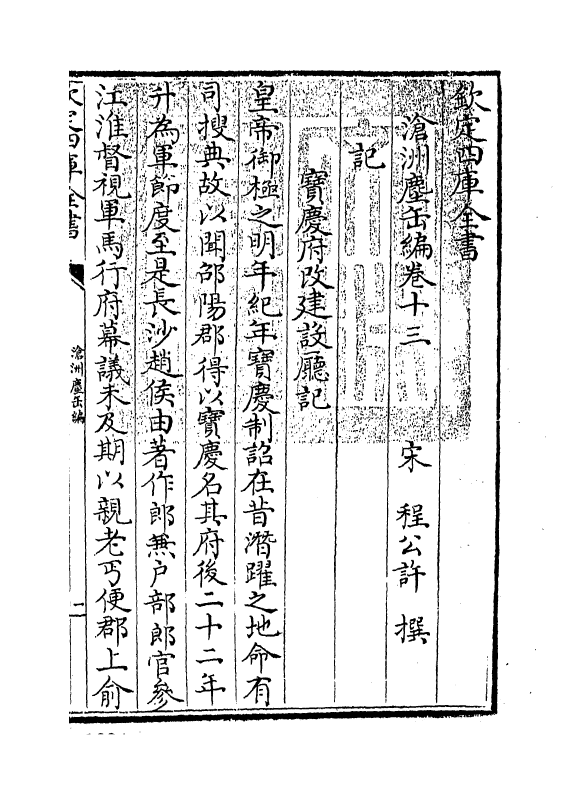 欽定四庫全書
滄洲塵缶編卷十三　宋　程公許　撰
記
寶慶府改建設廳記
皇帝御極之明年紀年寶慶制詔在昔潛躍之地命有
司搜典故以聞邵陽郡得以寶慶名其府後二十二年
升為軍節度至是長沙趙侯由著作郎兼户部郎官參
江淮督視軍馬行府幕議未及期以親老丐便郡上俞
欽定四庫全書
滄洲塵缶編